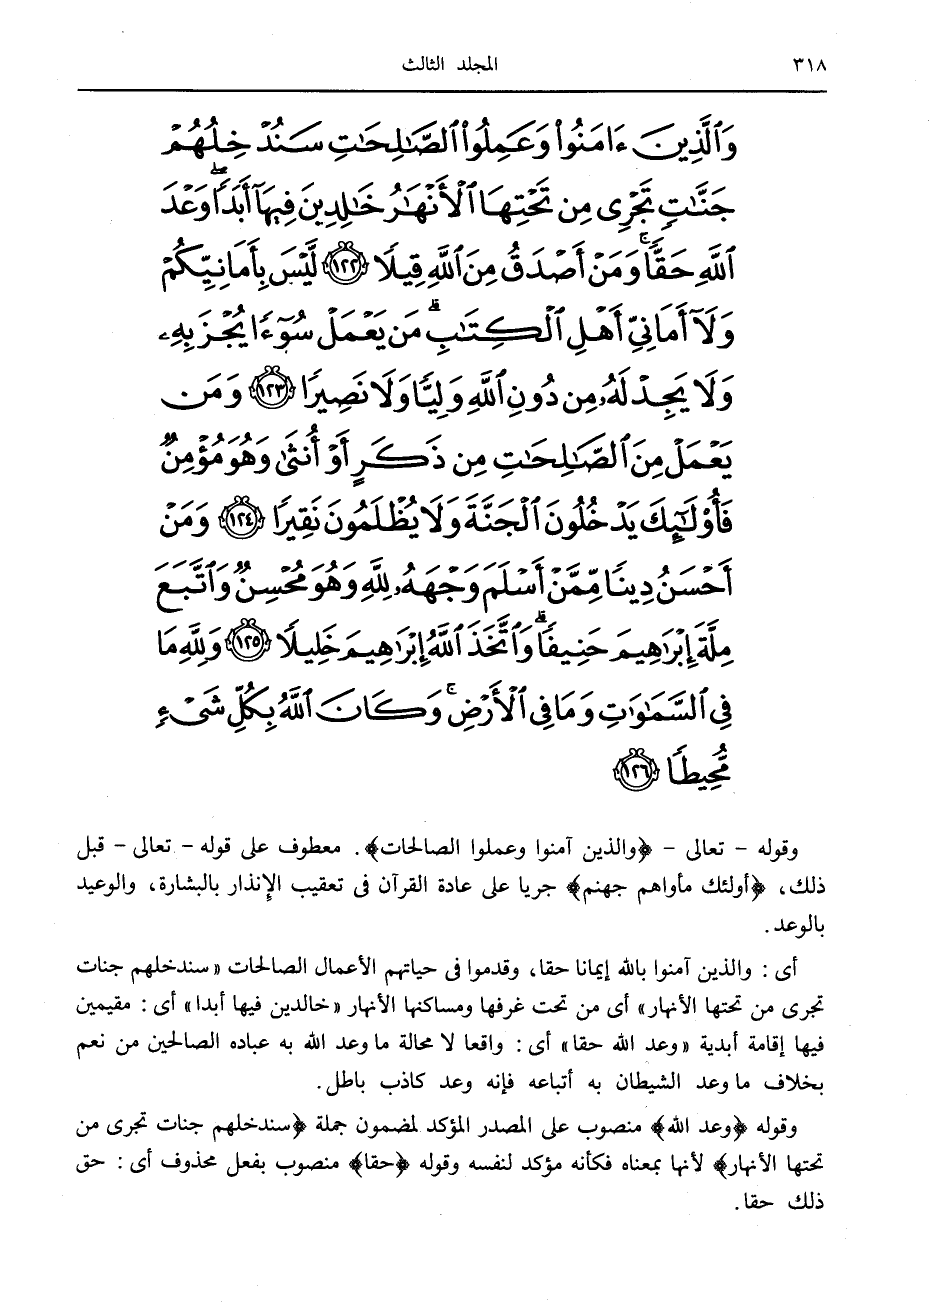 ٣١٨
المجلد الثالث
وَٱلَّذِينَ ءَامَنُوا۟ وَعَمِلُوا۟ ٱلصَّـٰلِحَـٰتِ سَنُدْخِلُهُمْ
جَنَّـٰتٍ تَجْرِى مِن تَحْتِهَا ٱلْأَنْهَـٰرُ خَـٰلِدِينَ فِيهَآ أَبَدًا ۖ وَعْدَ
ٱللَّهِ حَقًّا ۚ وَمَنْ أَصْدَقُ مِنَ ٱللَّهِ قِيلًا ١٢٢ لَّيْسَ بِأَمَانِيِّكُمْ
وَلَآ أَمَانِىِّ أَهْلِ ٱلْكِتَـٰبِ ۗ مَن يَعْمَلْ سُوٓءًا يُجْزَ بِهِۦ
وَلَا يَجِدْ لَهُۥ مِن دُونِ ٱللَّهِ وَلِيًّا وَلَا نَصِيرًا ١٢٣ وَمَن
يَعْمَلْ مِنَ ٱلصَّـٰلِحَـٰتِ مِن ذَكَرٍ أَوْ أُنثَىٰ وَهُوَ مُؤْمِنٌ
فَأُو۟لَـٰٓئِكَ يَدْخُلُونَ ٱلْجَنَّةَ وَلَا يُظْلَمُونَ نَقِيرًا ١٢٤ وَمَنْ
أَحْسَنُ دِينًا مِّمَّنْ أَسْلَمَ وَجْهَهُۥ لِلَّهِ وَهُوَ مُحْسِنٌ وَٱتَّبَعَ
مِلَّةَ إِبْرَٰهِيمَ حَنِيفًا ۗ وَٱتَّخَذَ ٱللَّهُ إِبْرَٰهِيمَ خَلِيلًا ١٢٥ وَلِلَّهِ مَا
فِى ٱلسَّمَـٰوَٰتِ وَمَا فِى ٱلْأَرْضِ ۚ وَكَانَ ٱللَّهُ بِكُلِّ شَىْءٍ
مُّحِيطًا ١٢٦
وقوله - تعالى - ﴿والذين آمنوا وعملوا الصالحات﴾. معطوف على قوله - تعالى - قبل
ذلك، ﴿أولئك مأواهم جهنم﴾ جريا على عادة القرآن فى تعقيب الإنذار بالبشارة، والوعيد
بالوعد.
أى : والذين آمنوا بالله إيمانا حقا، وقدموا فى حياتهم الأعمال الصالحات «سندخلهم جنات
تجرى من تحتها الأنهار» أى من تحت غرفها ومساكنها الأنهار «خالدين فيها أبدا» أى : مقيمين
فيها إقامة أبدية «وعد الله حقا» أى : واقعا لا محالة ما وعد الله به عباده الصالحين من نعم
بخلاف ما وعد الشيطان به أتباعه فإنه وعد كاذب باطل.
وقوله ﴿وعد الله﴾ منصوب على المصدر المؤكد لمضمون جملة ﴿سندخلهم جنات تجرى من
تحتها الأنهار﴾ لأنها بمعناه فكأنه مؤكد لنفسه وقوله ﴿حقا﴾ منصوب بفعل محذوف أى : حق
ذلك حقا.